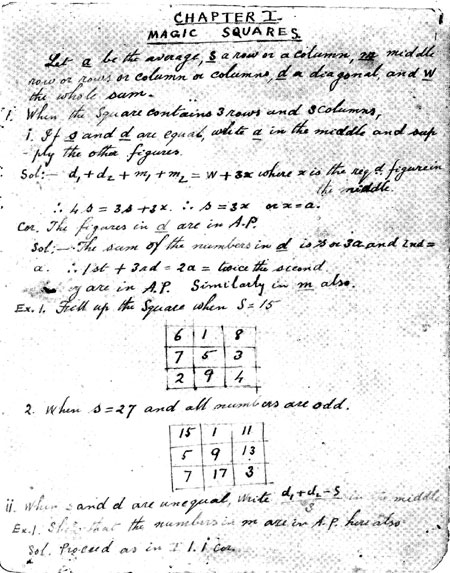 CHAPTER I
MAGIC SQUARES
Let a be the average, s a row or a column, m middle
row or rows or column or columns, d a diagonal, and W
the whole sum.
1. When the Square contains 3 rows and 3 columns,
i. If s and d are equal, write a in the middle and sup
-ply the other figures.
Sol:— d1 + d2 + m1 + m2 = W + 3x where x is the reqd figure in
the middle.
∴ 4s = 3s + 3x. ∴ s = 3x or x = a.
Cor. The figures in d are in A.P.
Sol:— The sum of the numbers in d is s or 3a and 2nd =
a. ∴ 1st + 3rd = 2a = twice the second
are in A.P. Similarly in m also.
Ex. 1. Fill up the Square when S = 15
6 1 8
7 5 3
2 9 4
2. When s = 27 and all numbers are odd.
15 1 11
5 9 13
7 17 3
ii. When s and d are unequal, write (d1 + d2 - s)/3 in the middle
Ex. 1. Show that the numbers in m are in A.P. here also
Sol. Proceed as in I 1.i cor.